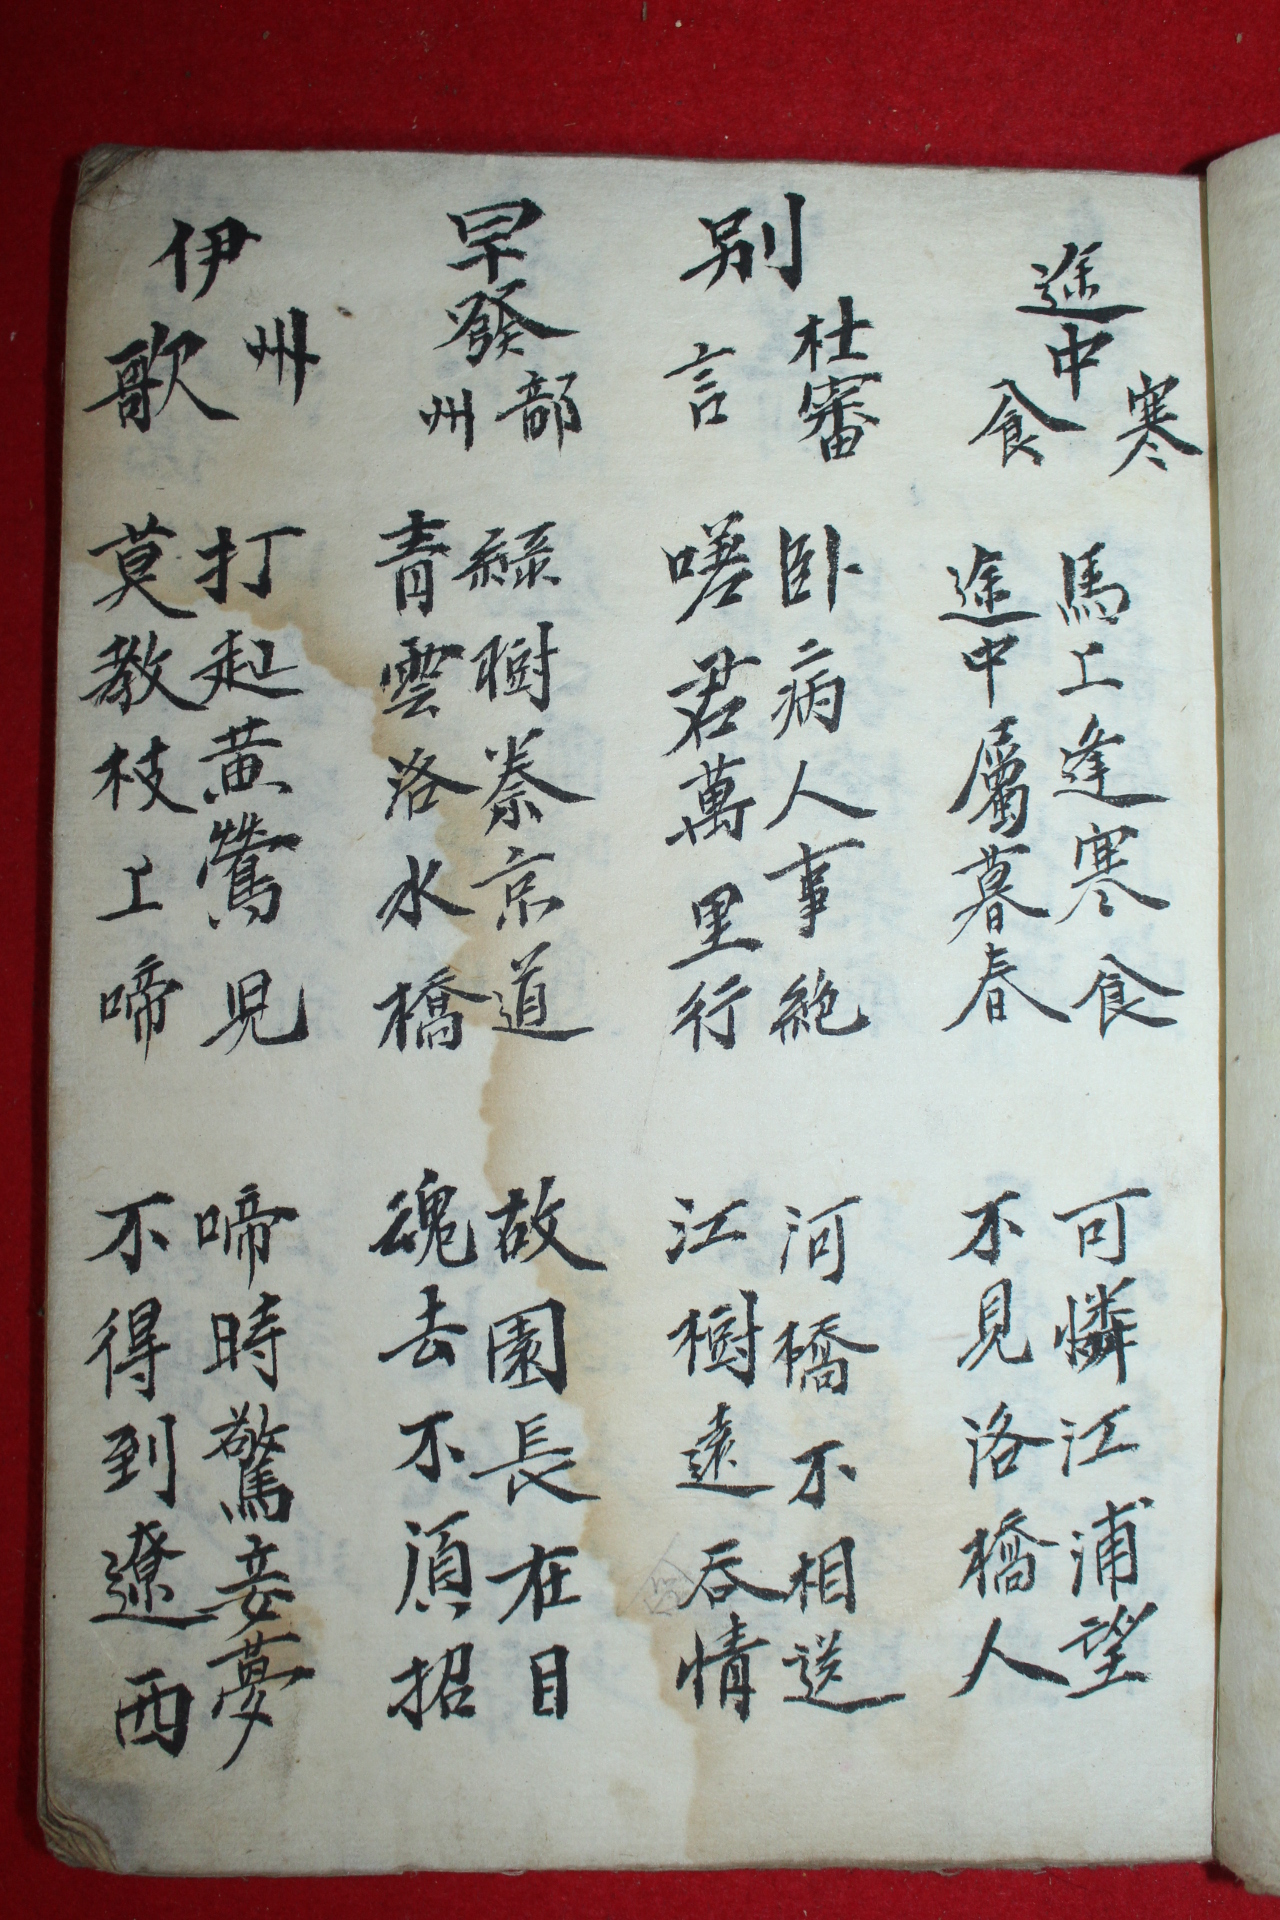 途中寒食
馬上逢寒食
途中屬暮春
可憐江浦望
不見洛橋人
別杜審言
臥病人事絶
嗟君萬里行
河橋不相送
江樹遠含情
早發部州
綠樹秦京道
青雲洛水橋
故園長在目
魂去不須招
伊州歌
打起黃鶯兒
莫教枝上啼
啼時驚妾夢
不得到遼西